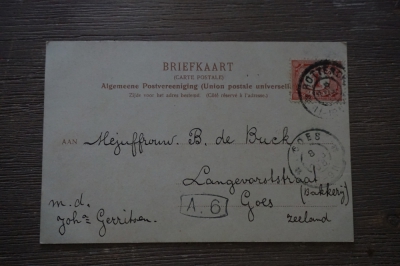 BRIEFKAART
(CARTE POSTALE)
Algemeene Postvereeniging (Union postale universelle)
Zijde voor het adres bestemd. (Côté réservé à l'adresse.)
ROTTERD
AAN Mejuffrouw B. de Buck
GOES
Langevorststraat
(Bakkerij)
A. 6 Goes
Zeeland
m. d.
Joh=
Gerritsen.